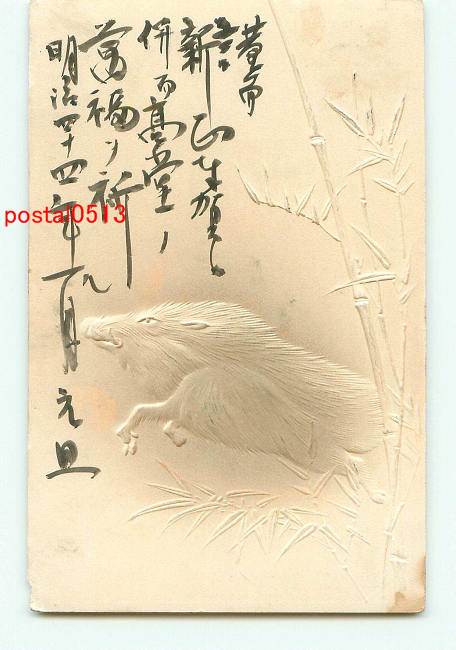 謹而
新正を賀し
併而高堂ノ
萬福ヲ祈ル
明治四十四年一月元旦
postal0513